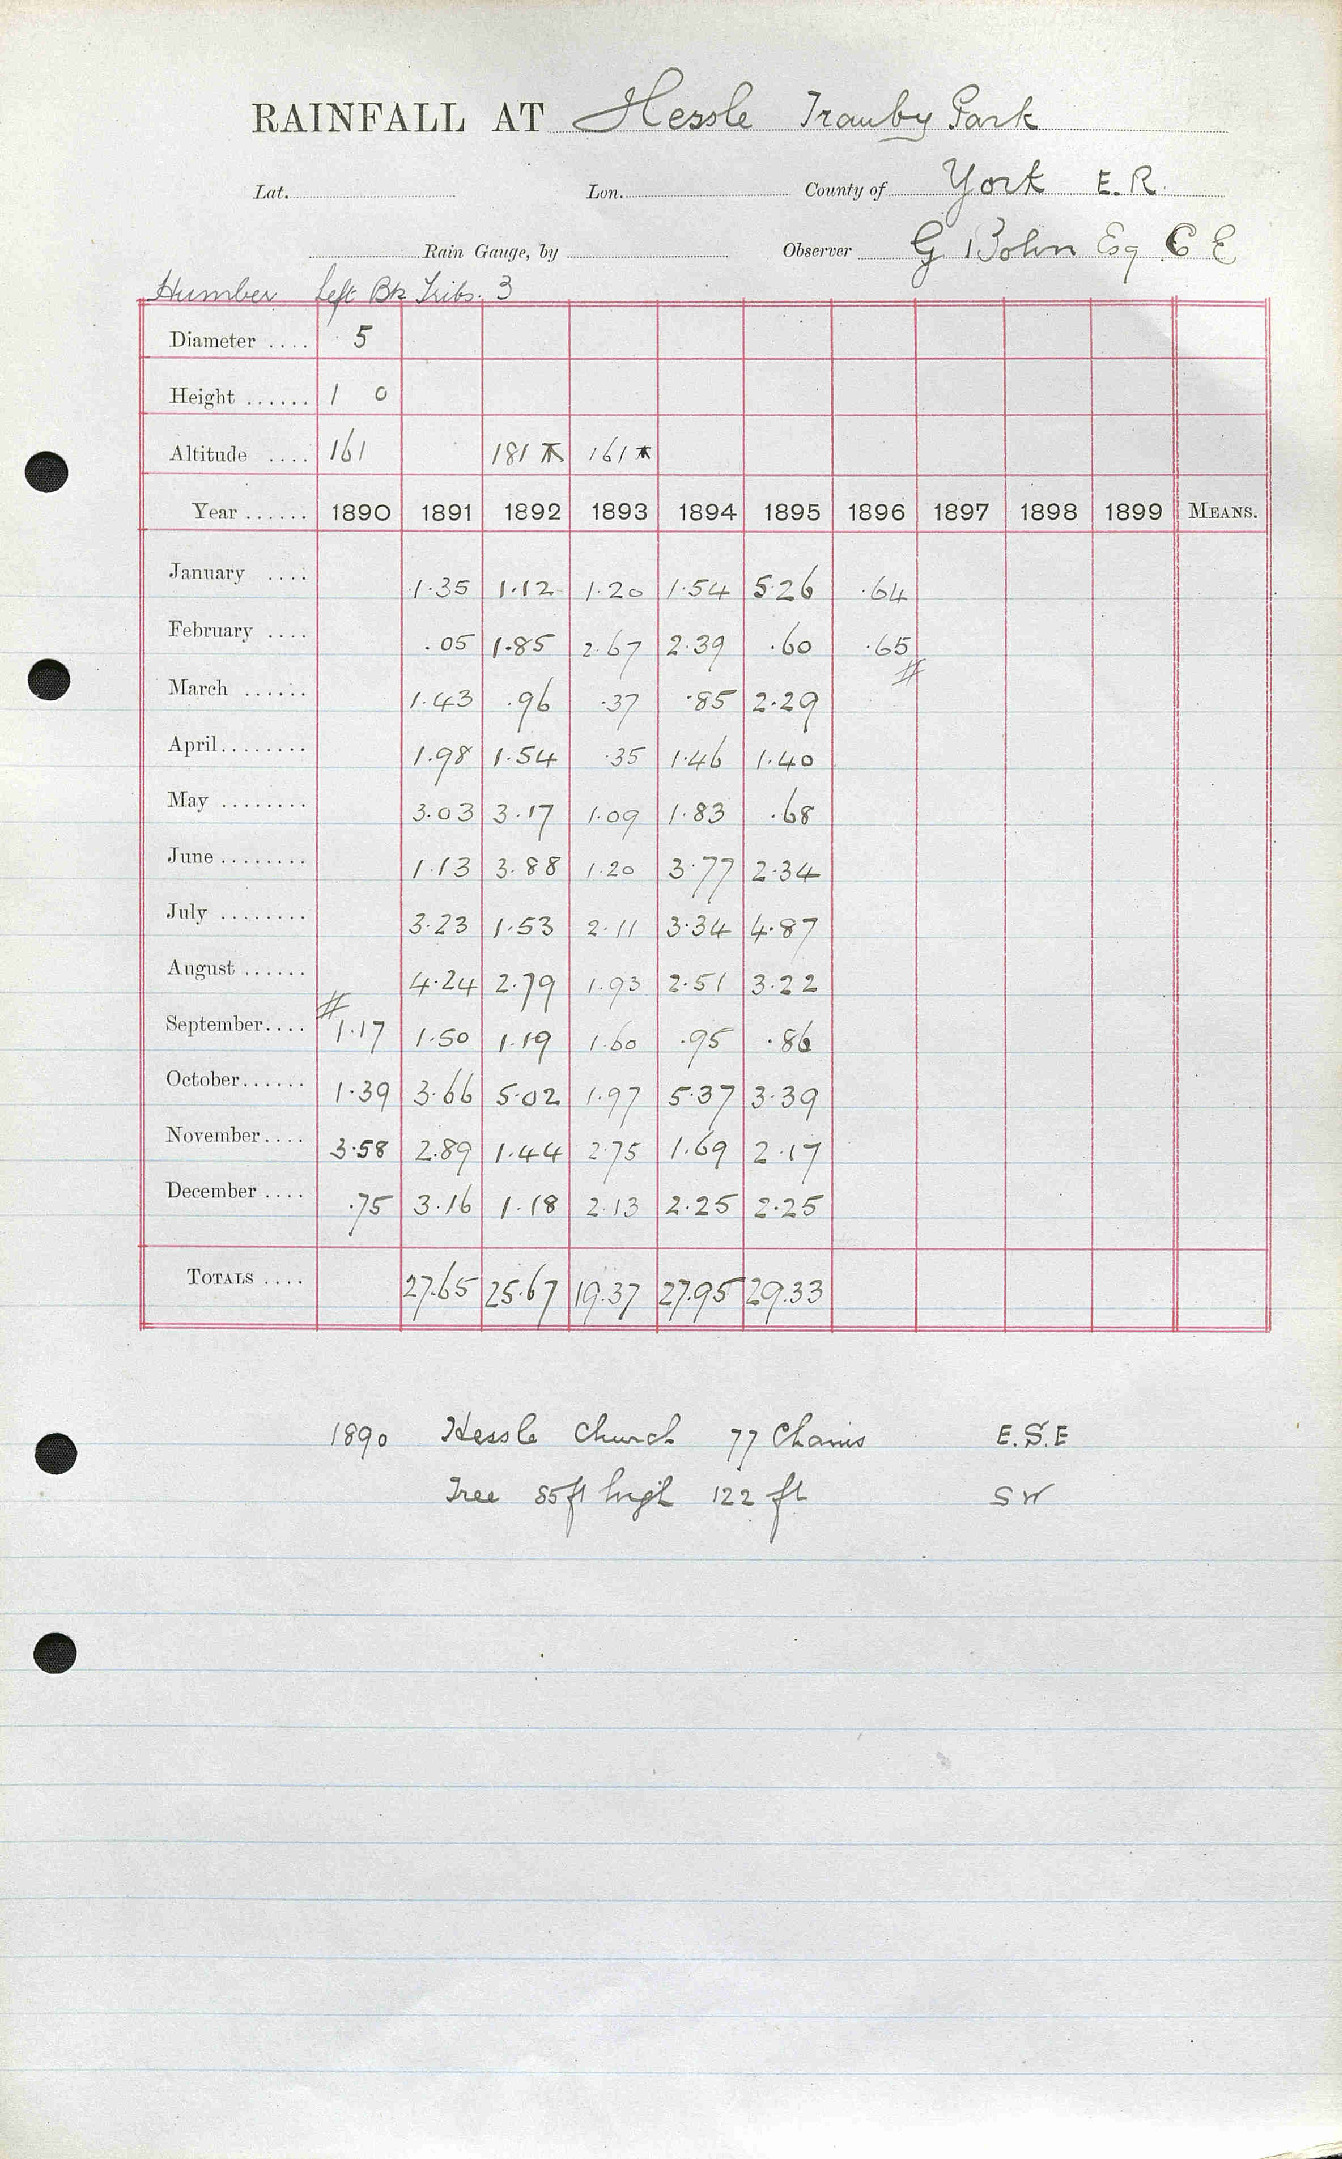 RAINFALL AT Hessle Tranby Park
Lat. Lon. County of York E.R.
Rain Gauge, by Observer G Bohn Esq C E
Humber Left Bk Tribs. 3
Diameter .... 5
Height ...... 1 0
Altitude .... 161 181 ⚹ 161 ⚹
Year ...... 1890 1891 1892 1893 1894 1895 1896 1897 1898 1899 MEANS.
January .... 1.35 1.12 1.20 1.54 5.26 .64
February .... .05 1.85 2.67 2.39 .60 .65 #
March ...... 1.43 .96 .37 .85 2.29
April........ 1.98 1.54 .35 1.46 1.40
May ........ 3.03 3.17 1.09 1.83 .68
June ........ 1.13 3.88 1.20 3.77 2.34
July ........ 3.23 1.53 2.11 3.34 4.87
August ...... 4.24 2.79 1.93 2.51 3.22
September.... # 1.17 1.50 1.19 1.60 .95 .86
October...... 1.39 3.66 5.02 1.97 5.37 3.39
November.... 3.58 2.89 1.44 2.75 1.69 2.17
December .... .75 3.16 1.18 2.13 2.25 2.25
TOTALS .... 27.65 25.67 19.37 27.95 29.33
1890 Hessle Church 77 Chains E.S.E
Tree 85 ft high 122 ft SW